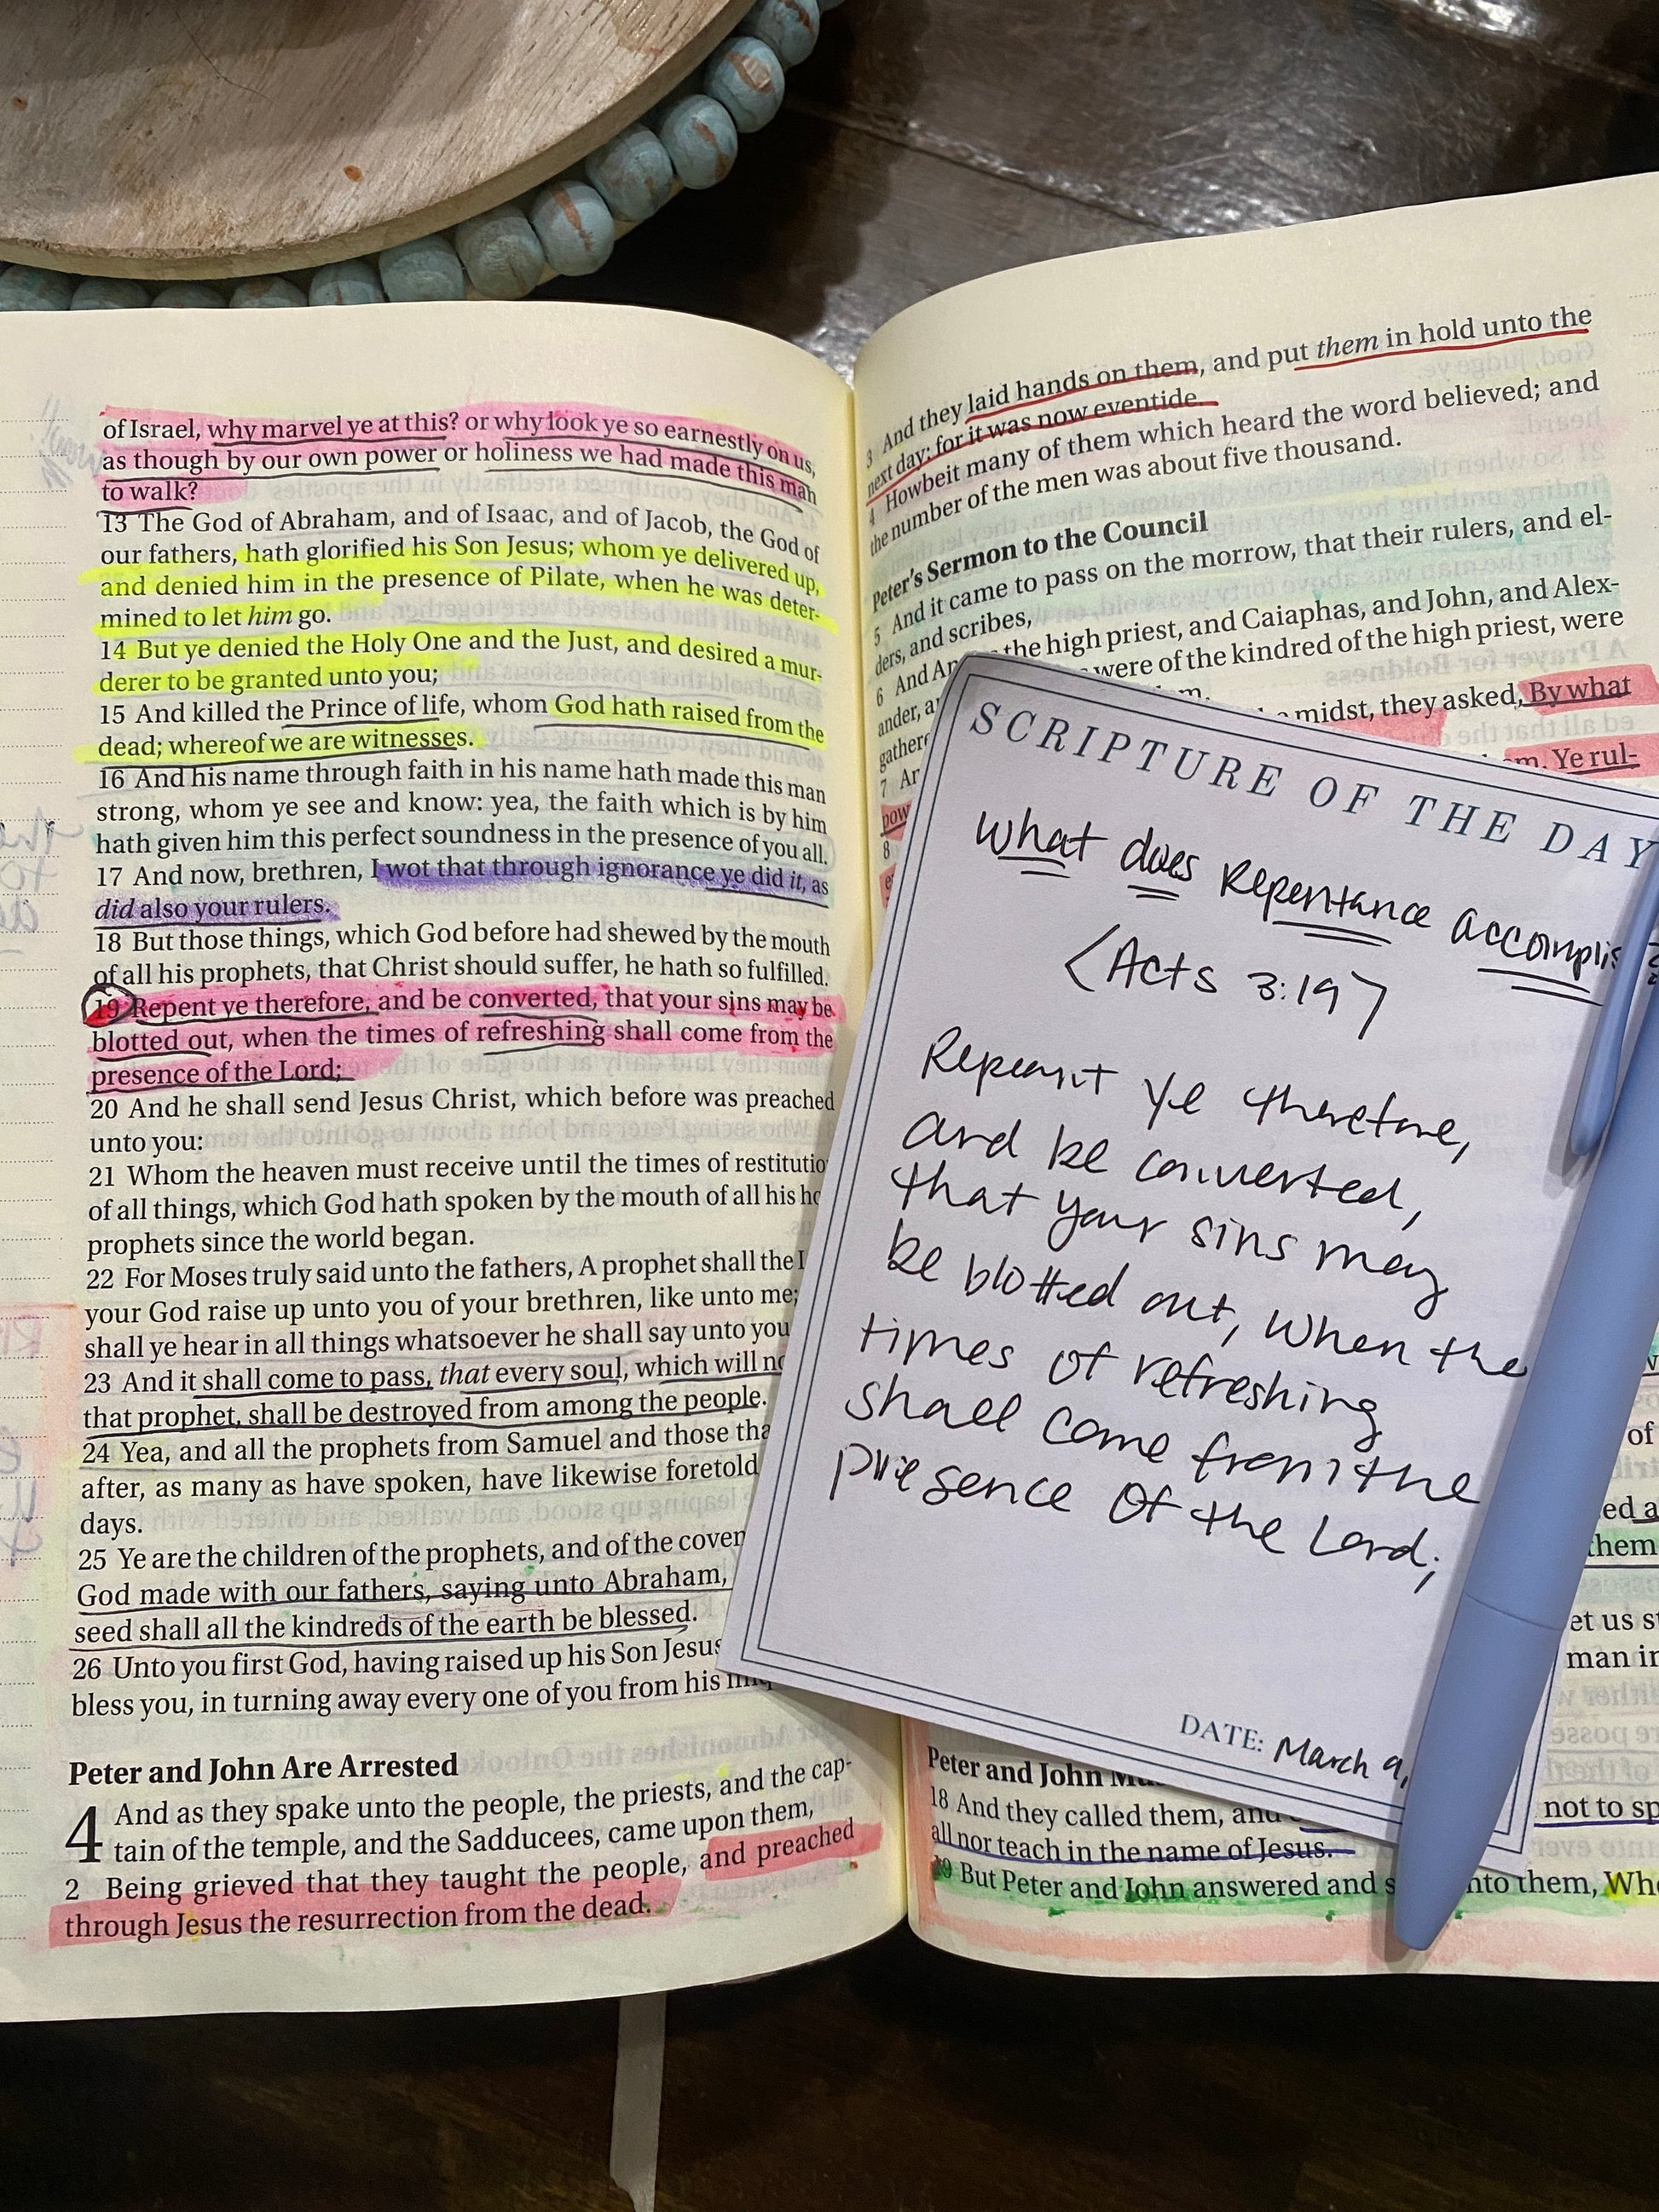 of Israel, why marvel ye at this? or why look ye so earnestly on us,
as though by our own power or holiness we had made this man
to walk?
13 The God of Abraham, and of Isaac, and of Jacob, the God of
our fathers, hath glorified his Son Jesus; whom ye delivered up,
and denied him in the presence of Pilate, when he was deter-
mined to let him go.
14 But ye denied the Holy One and the Just, and desired a mur-
derer to be granted unto you;
15 And killed the Prince of life, whom God hath raised from the
dead; whereof we are witnesses.
16 And his name through faith in his name hath made this man
strong, whom ye see and know: yea, the faith which is by him
hath given him this perfect soundness in the presence of you all.
17 And now, brethren, I wot that through ignorance ye did it, as
did also your rulers.
18 But those things, which God before had shewed by the mouth
of all his prophets, that Christ should suffer, he hath so fulfilled.
19 Repent ye therefore, and be converted, that your sins may be
blotted out, when the times of refreshing shall come from the
presence of the Lord;
20 And he shall send Jesus Christ, which before was preached
unto you:
21 Whom the heaven must receive until the times of restitutio
of all things, which God hath spoken by the mouth of all his ho
prophets since the world began.
22 For Moses truly said unto the fathers, A prophet shall the
your God raise up unto you of your brethren, like unto me;
shall ye hear in all things whatsoever he shall say unto you
23 And it shall come to pass, that every soul, which will no
that prophet, shall be destroyed from among the people.
24 Yea, and all the prophets from Samuel and those tha
after, as many as have spoken, have likewise foretold
days.
25 Ye are the children of the prophets, and of the coven
God made with our fathers, saying unto Abraham,
seed shall all the kindreds of the earth be blessed.
26 Unto you first God, having raised up his Son Jesus
bless you, in turning away every one of you from his
Peter and John Are Arrested
4 And as they spake unto the people, the priests, and the cap-
tain of the temple, and the Sadducees, came upon them,
2 Being grieved that they taught the people, and preached
through Jesus the resurrection from the dead.
3 And they laid hands on them, and put them in hold unto the
next day: for it was now eventide.
4 Howbeit many of them which heard the word believed; and
the number of the men was about five thousand.
Peter's Sermon to the Council
5 And it came to pass on the morrow, that their rulers, and el-
ders, and scribes,
6 And An the high priest, and Caiaphas, and John, and Alex-
ander, a were of the kindred of the high priest, were
gathere
7 An midst, they asked, By what
pow Ye rul-
8
SCRIPTURE OF THE DAY
What does Repentance accomplis
<Acts 3:19>
Repent ye therefore,
and be converted,
that your sins may
be blotted out, when the
times of refreshing
shall come from the
presence of the Lord;
DATE: March 9,
of
ed a
them
et us s
man in
Peter and John
18 And they called them, and not to sp
all nor teach in the name of Jesus.
19 But Peter and John answered and s nto them, Whe